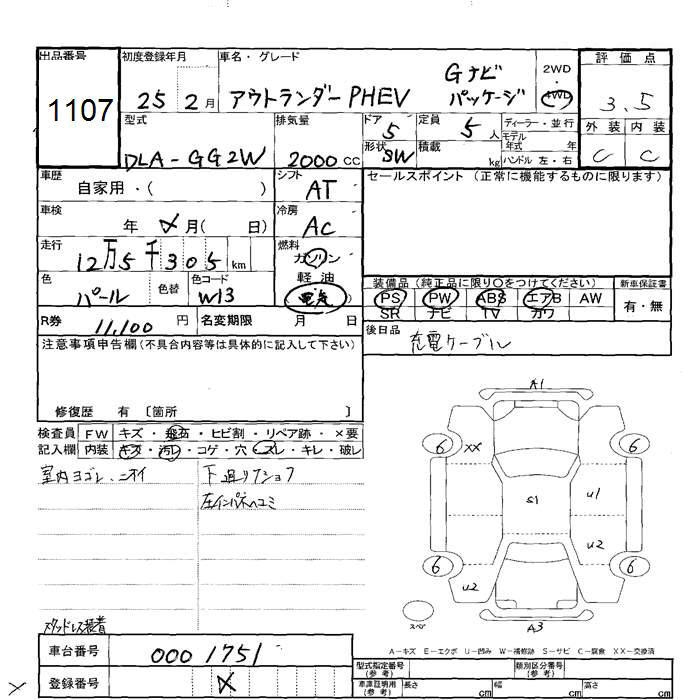 出品番号
1107
初度登録年月
25 2月
車名・グレード
アウトランダーPHEV Gナビ
パッケージ
2WD
・
4WD
評価点
3.5
外装 内装
C C
型式
DLA-GG2W
排気量
2000cc
ドア 5
形状 SW
定員 5人
積載 kg
ディーラー・並行
モデル年式 年
ハンドル 左・右
車歴
自家用・( )
シフト AT
セールスポイント (正常に機能するものに限ります)
車検
年 月( 日)
冷房 AC
走行
12万5千305km
燃料
ガソリン
軽油
電気
色
パール
色替
色コード
W13
装備品 (純正品に限り○をつけてください)
PS PW ABS エアB AW
SR ナビ TV カワ
新車保証書
有・無
R券 11,100円
名変期限 月 日
後日品
充電ケーブル
注意事項申告欄 (不具合内容等は具体的に記入して下さい)
修復歴 有 〔箇所 〕
検査員 FW キズ・飛石・ヒビ割・リペア跡・×要
記入欄 内装 キズ・汚れ・コゲ・穴・スレ・キレ・破レ
室内ヨゴレ.ニオイ
下廻りサショウ
左インパネヘコミ
スタッドレス装着
A1
6 XX 6
S1 U1
U2
6 U2 6
スペア
A3
A-キズ E-エクボ U-凹み W-補修跡 S-サビ C-腐食 XX-交換済
車台番号
0001751
登録番号
型式指定番号
(参考)
類別区分番号
(参考)
車庫証明用
(参考)
長さ cm 幅 cm 高さ cm